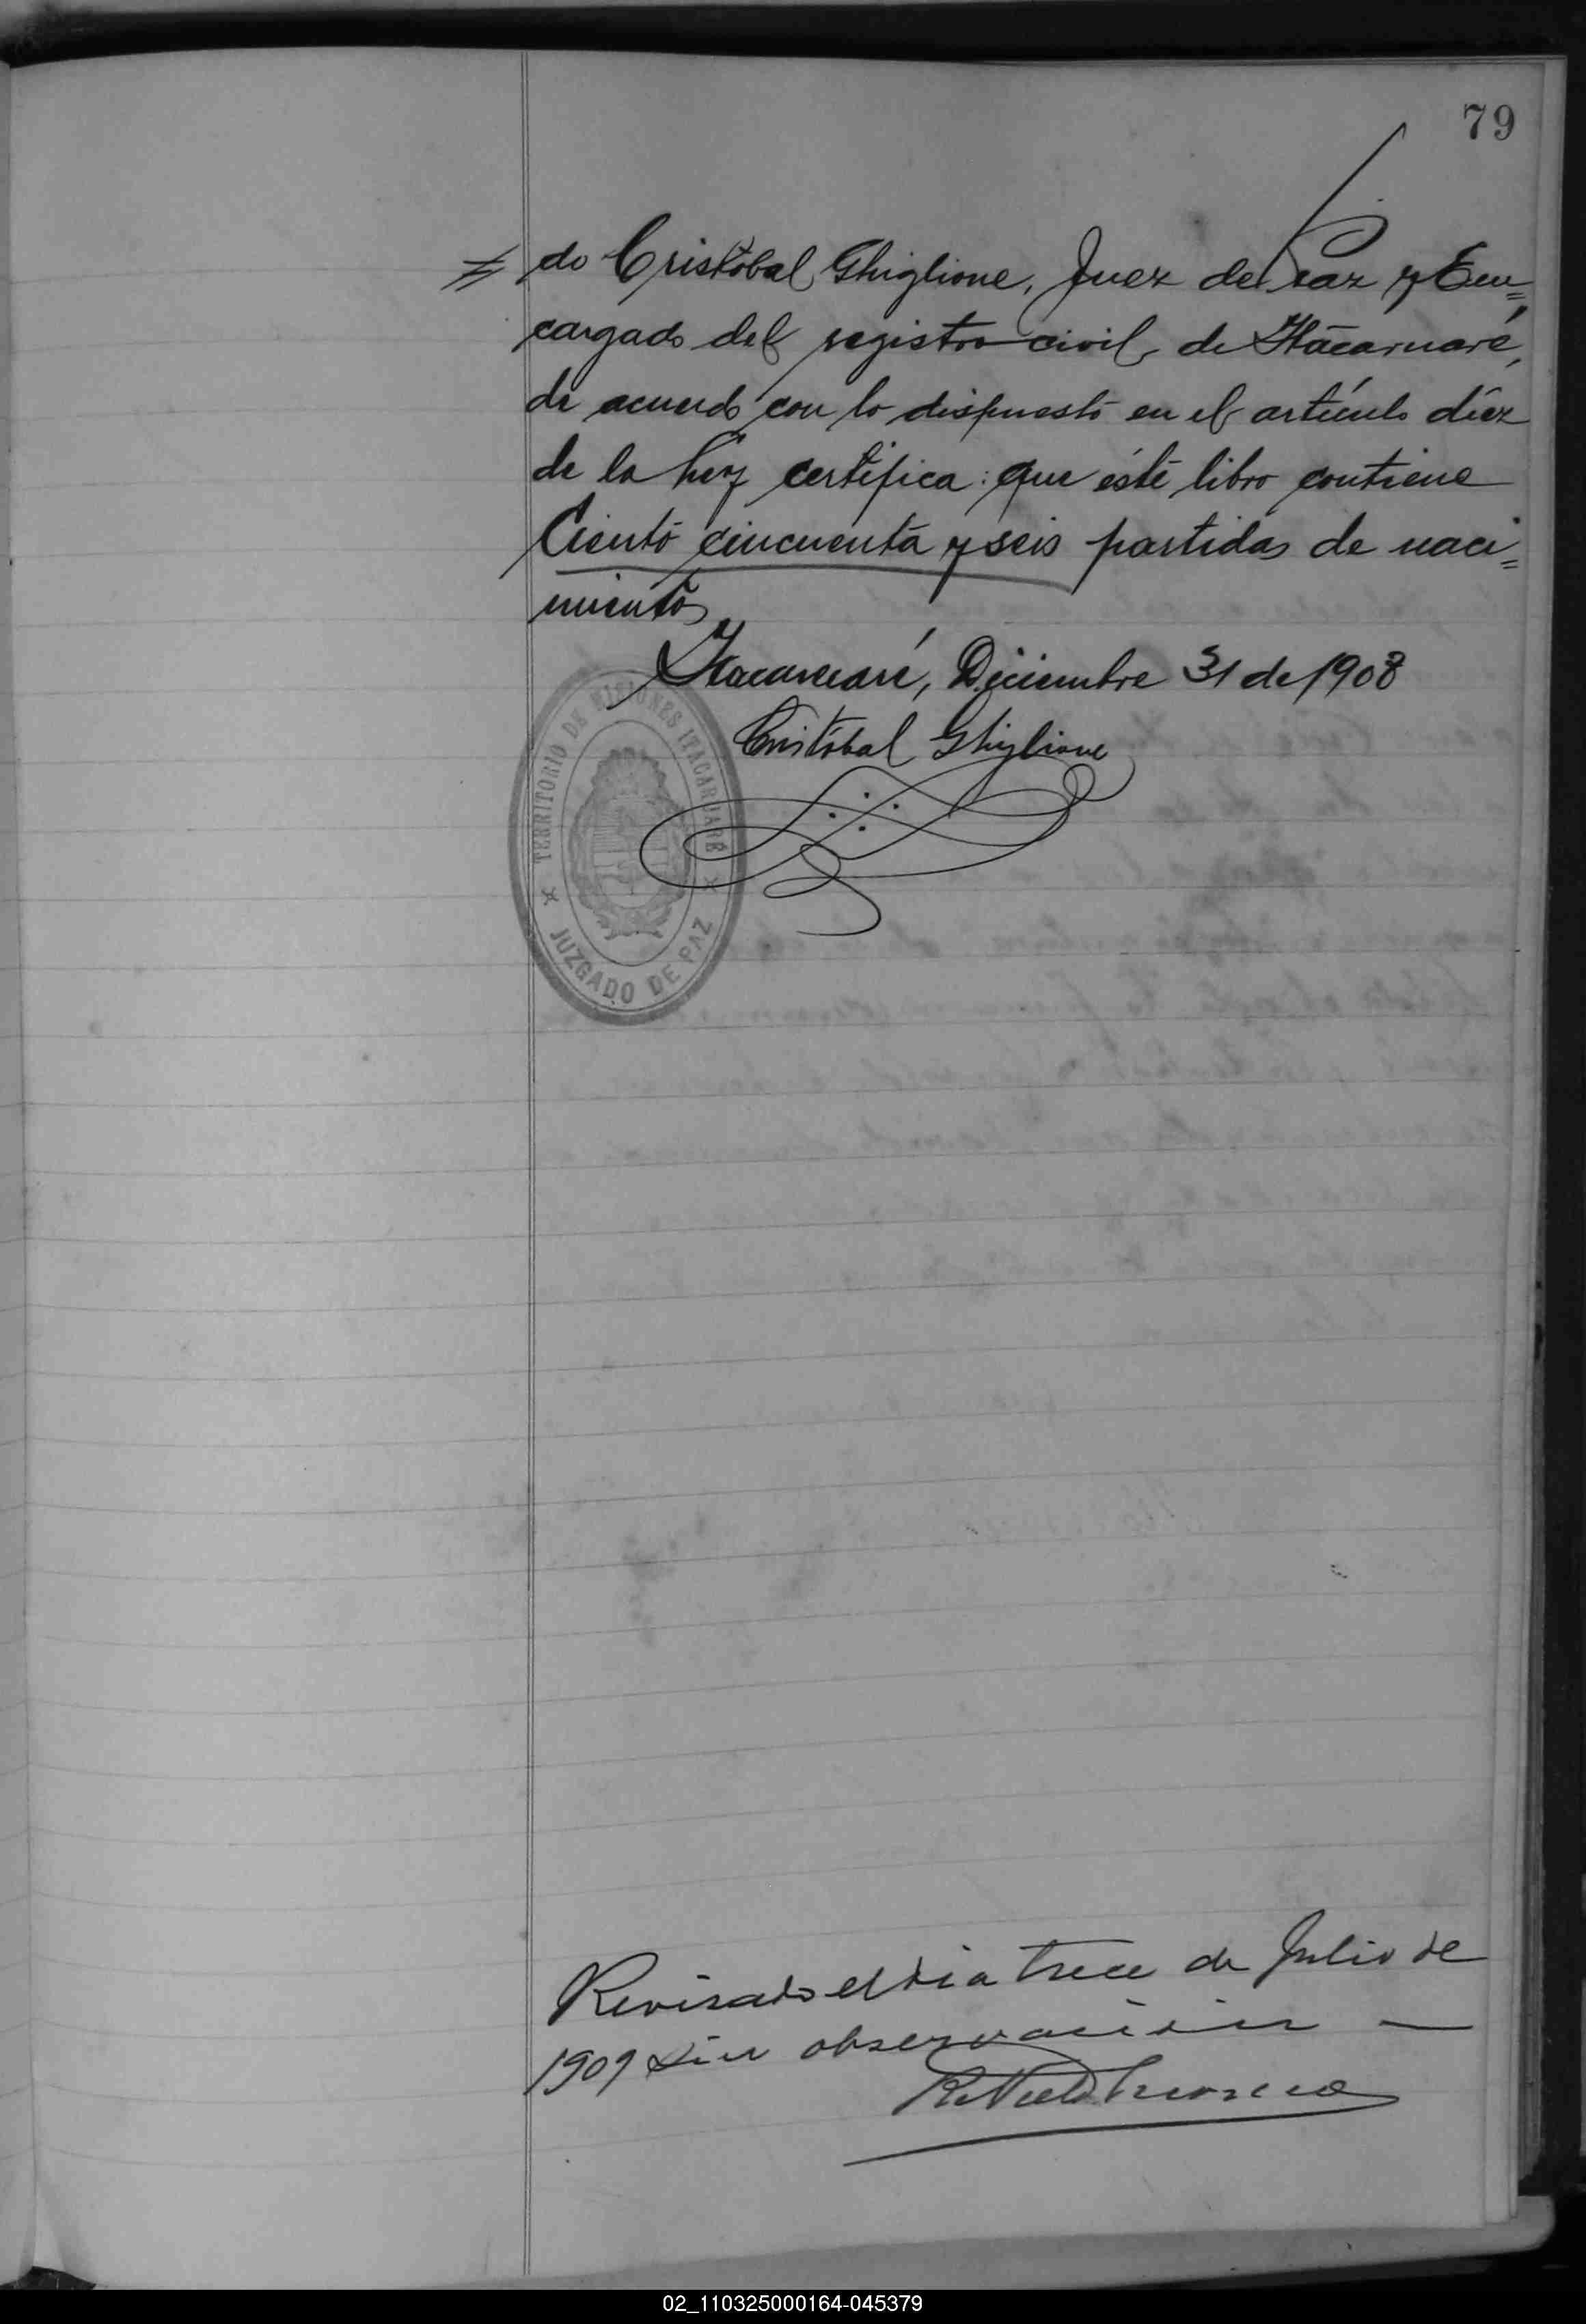 79
do Cristóbal Ghiglione, Juez de Paz y En=
cargado del registro civil de Itacaruaré,
de acuerdo con lo dispuesto en el artículo diez
de la Ley certifica: que éste libro contiene
Ciento cincuenta y seis partidas de naci=
miento
Itacaruaré, Diciembre 31 de 1908
Cristóbal Ghiglione
TERRITORIO DE MISIONES ITACARUARÉ
JUZGADO DE PAZ
Revisado el dia trece de Julio de
1909 sin observación —
02_110325000164-045379